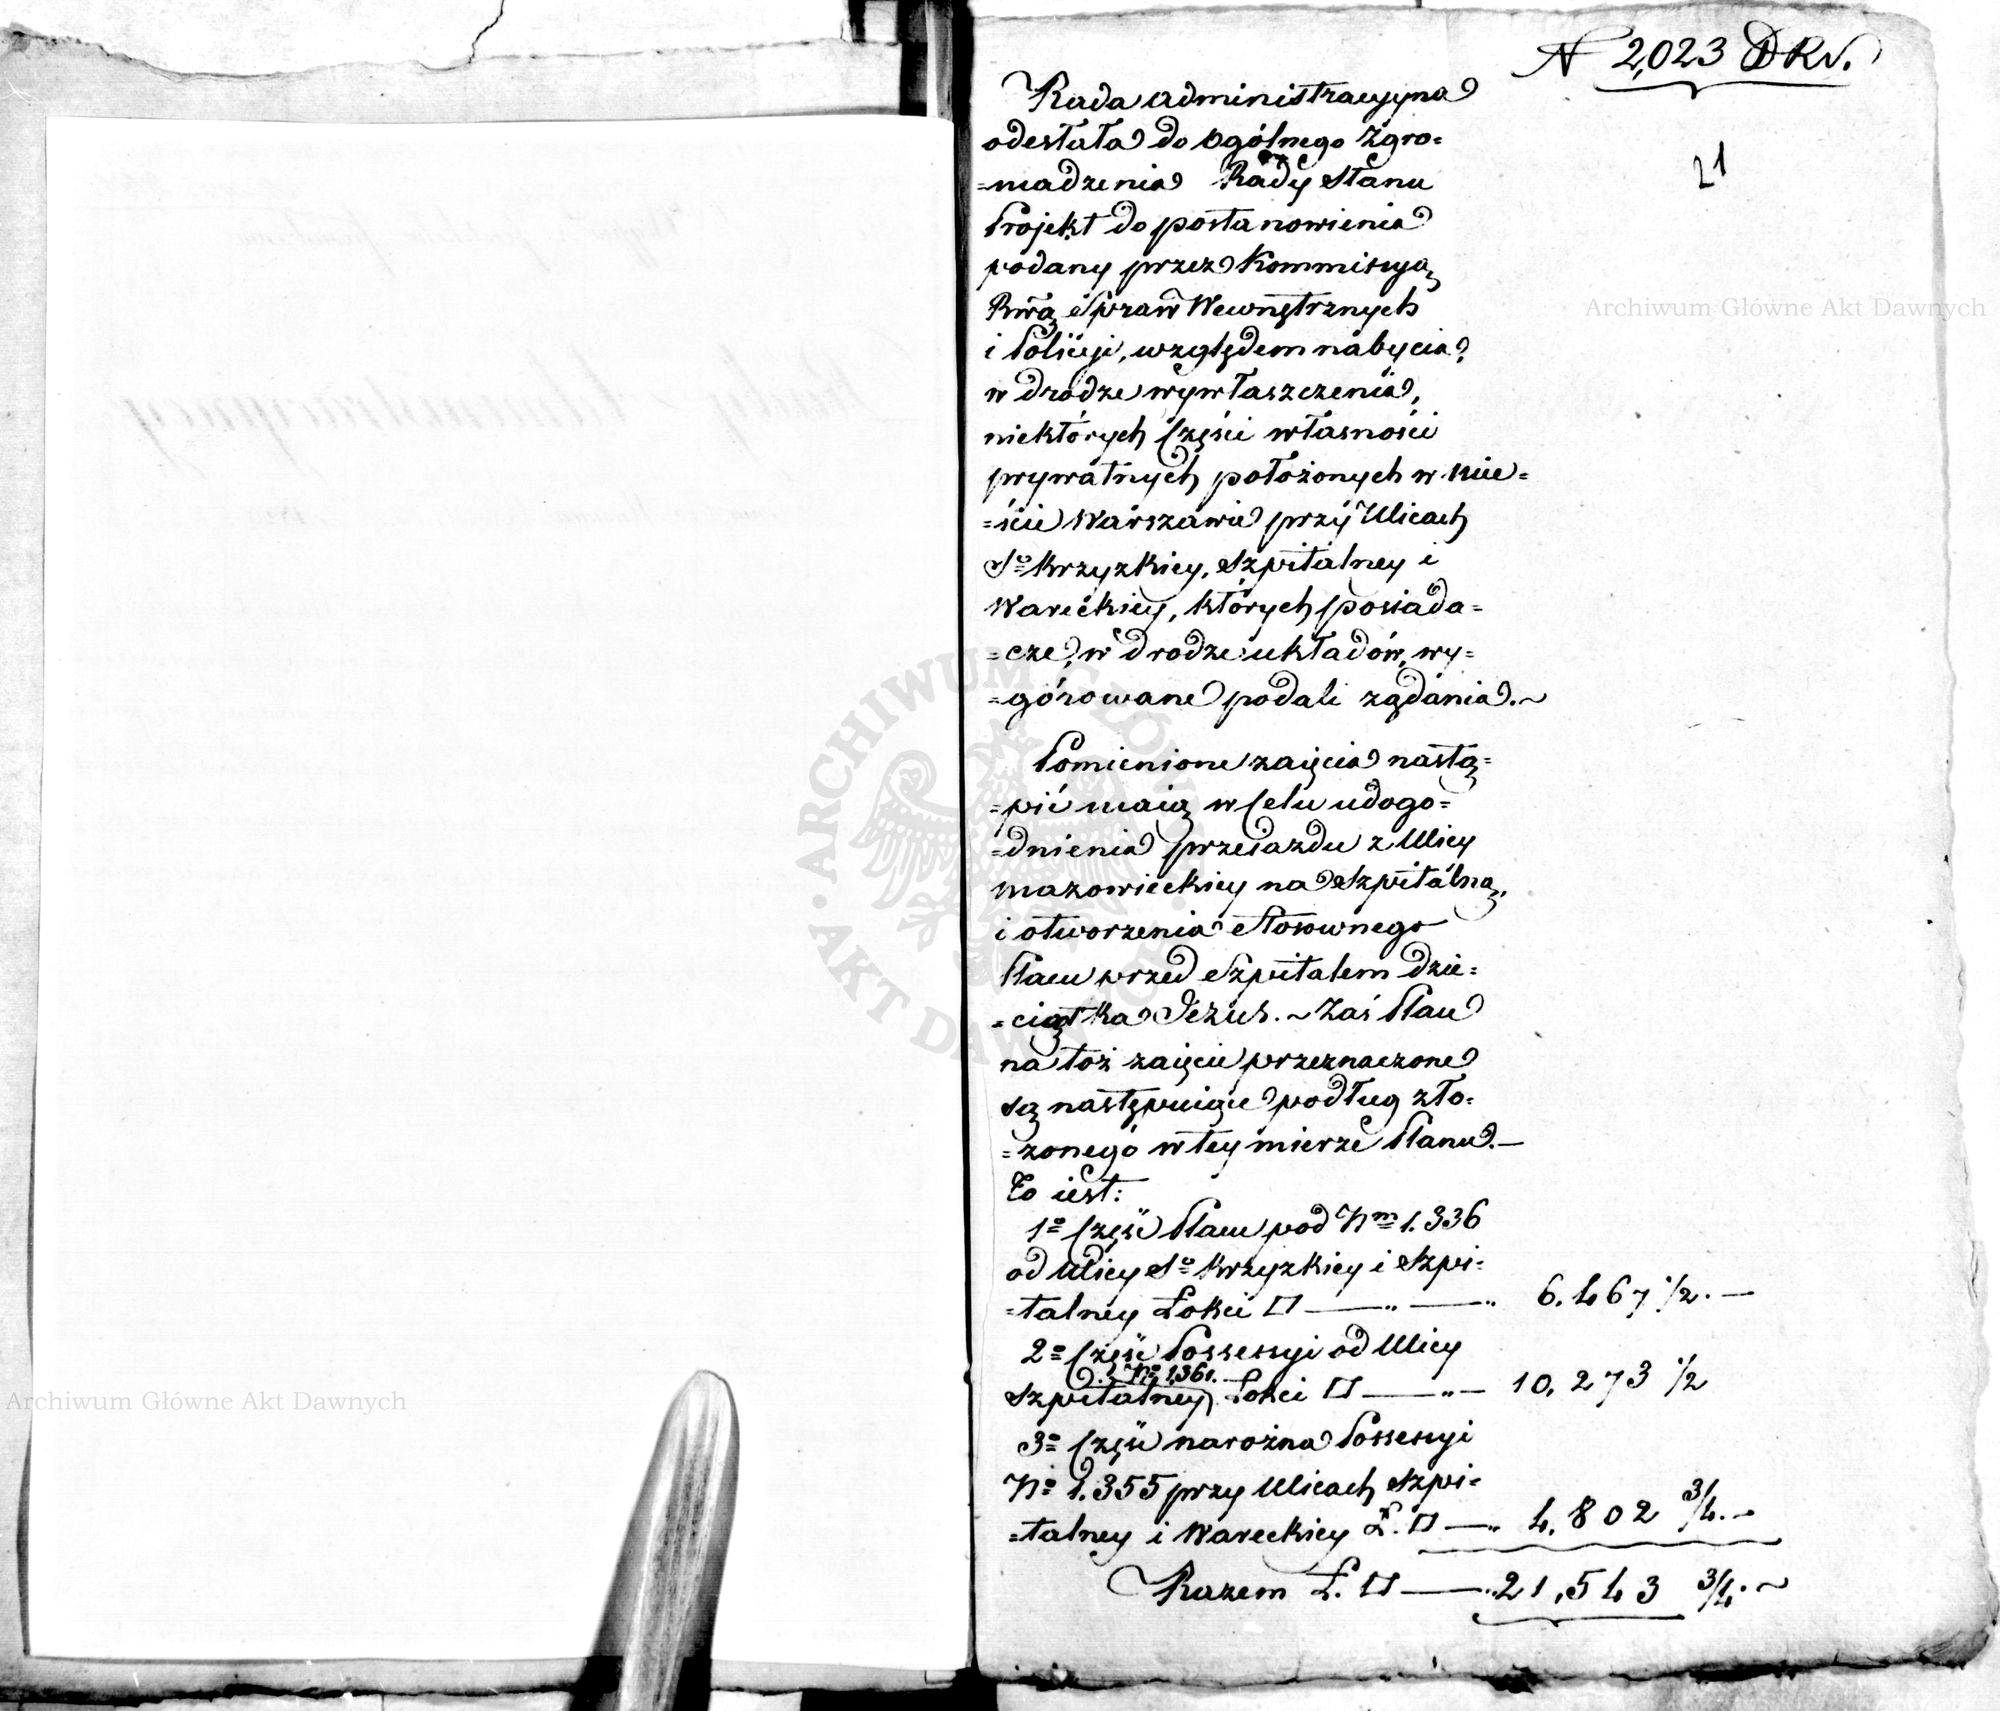 N 2,023 D R N.
21
Rada administracyyna
odesłała do ogólnego Zgro=
=madzenia Rady Stanu
Projekt do postanowienia
podany przez Kommissyą
Rwą Spraw Wewnętrznych
i Policyi, względem nabycia,
w drodze wywłaszczenia,
niektórych Części własności
prywatnych położonych w mie=
=ście Warszawie przy Ulicach
Sº Krzyzkiey, Szpitalney i
Wareckiey, których posiada=
=cze, w drodze układów, wy=
=górowane podali ządania.~
Pomienione zaięcia nastą=
=pić maią w Celu udogo=
=dnienia przeiazdu z Ulicy
Mazowieckiey na Szpitalną,
i otworzenia Stosownego
Placu przed Szpitalem Dzie=
=ciątka Jezus.~ Zaś Place
na toż zaięcie przeznaczone
są następuiące podług zło=
=zonego w tey mierze Planu.—
To iest:
1º Część Placu pod Nm 1.336
od Ulicy Sº Krzyzkiey i Szpi=
=talney Łokci □ —..—.. 6.467 1/2.—
2º Część Possessyi od Ulicy
Nº 1361.
Szpitalney Łokci □ —..— 10,273 1/2
3º Część narożna Possessyi
Nº 1.355 przy Ulicach Szpi=
=talney i Wareckiey Ł. □ —.. 4,802 3/4.—
Razem Ł. □ —..21,543 3/4.~
Archiwum Główne Akt Dawnych
Archiwum Główne Akt Dawnych
ARCHIWUM GŁÓWNE · AKT DAWNYCH ·